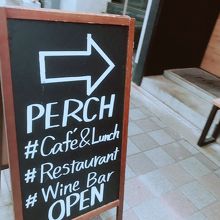 PERCH
#Café&Lunch
#Restaurant
#Wine Bar
OPEN